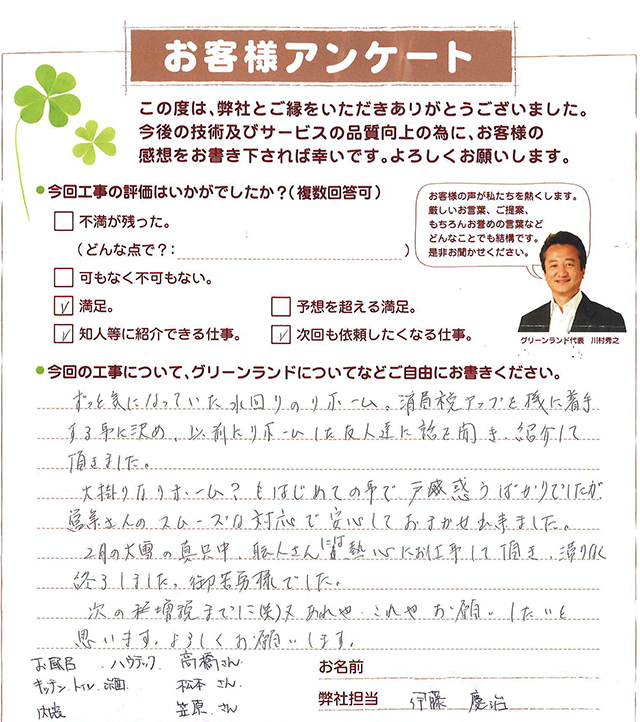 お客様アンケート
この度は、弊社とご縁をいただきありがとうございました。
今後の技術及びサービスの品質向上の為に、お客様の
感想をお書き下されば幸いです。よろしくお願いします。
今回工事の評価はいかがでしたか？(複数回答可)
不満が残った。
(どんな点で？: )
可もなく不可もない。
満足。
予想を超える満足。
知人等に紹介できる仕事。
次回も依頼したくなる仕事。
お客様の声が私たちを熱くします。
厳しいお言葉、ご提案、
もちろんお誉めの言葉など
どんなことでも結構です。
是非お聞かせください。
グリーンランド代表 川村秀之
今回の工事について、グリーンランドについてなどご自由にお書きください。
ずっと気になっていた水回りのリホーム。消費税アップを機に着手
する事に決め、以前にリホームした友人達に話を聞き、紹介して
頂きました。
大掛りなリホーム？もはじめての事で戸惑うばかりでしたが
営業さんのスムーズな対応で安心しておまかせ出来ました。
2月の大雪の真只中、職人さんには熱心にお仕事して頂き、滞りなく
終了しました。御苦労様でした。
次の 増税までに 又 あれや、これや お願いしたいと
思います。よろしくお願いします。
お風呂 ハウテック 高橋さん
キッチン、トイレ、 松本さん
内装 笠原さん
お名前
弊社担当 伊藤 慶治